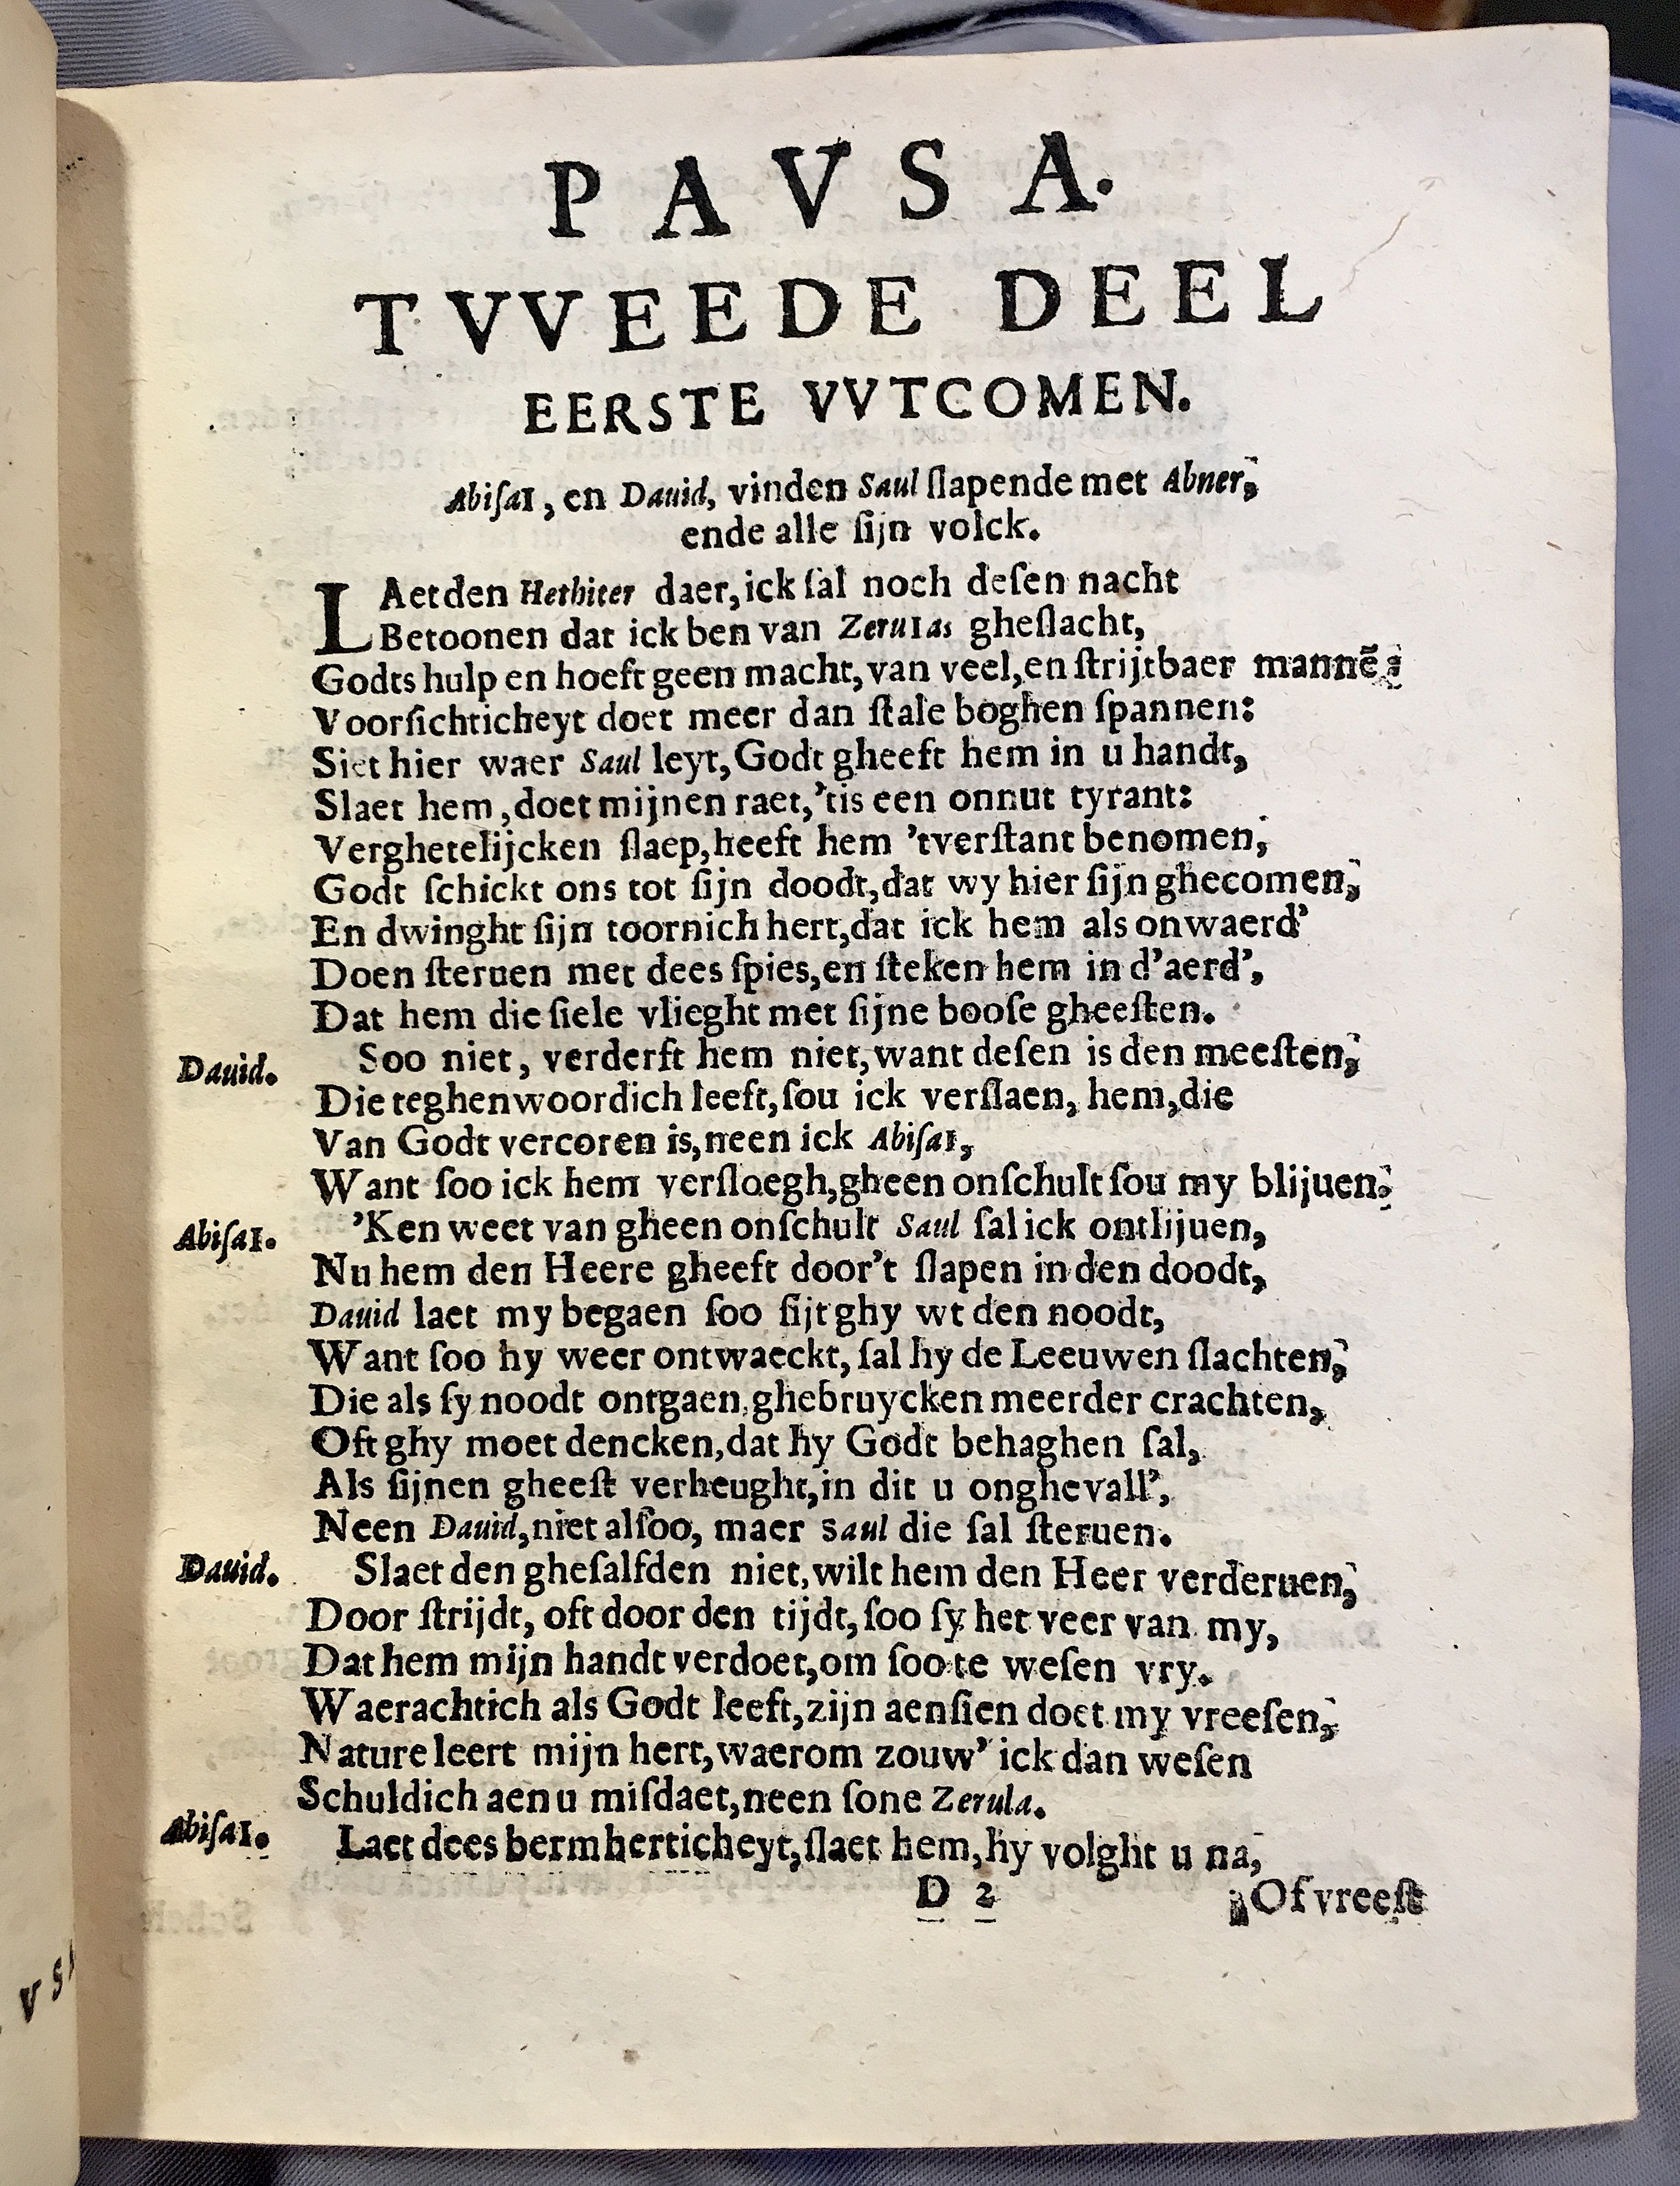 PAVSA.
TVVEEDE DEEL
EERSTE VVTCOMEN.
Abiſai, en Dauid, vinden Saul ſlapende met Abner,
ende alle ſijn volck.
LAet den Hethiter daer, ick ſal noch deſen nacht
Betoonen dat ick ben van Zeruias gheſlacht,
Godts hulp en hoeft geen macht, van veel, en ſtrijtbaer mannē:
Voorſichticheyt doet meer dan ſtale boghen ſpannen:
Siet hier waer Saul leyt, Godt gheeft hem in u handt,
Slaet hem, doet mijnen raet, 'tis een onnut tyrant:
Verghetelijcken ſlaep, heeft hem 'tverſtant benomen,
Godt ſchickt ons tot ſijn doodt, dat wy hier ſijn ghecomen,
En dwinght ſijn toornich hert, dat ick hem als onwaerd'
Doen ſteruen met dees ſpies, en ſteken hem in d'aerd',
Dat hem die ſiele vlieght met ſijne booſe gheeſten.
Dauid. Soo niet, verderft hem niet, want deſen is den meeſten,
Die teghenwoordich leeft, ſou ick verſlaen, hem, die
Van Godt vercoren is, neen ick Abiſai,
Want ſoo ick hem verſloegh, gheen onſchult ſou my blijuen.
Abiſai. 'Ken weet van gheen onſchult Saul ſal ick ontlijuen,
Nu hem den Heere gheeft door't ſlapen in den doodt,
Dauid laet my begaen ſoo ſijt ghy wt den noodt,
Want ſoo hy weer ontwaeckt, ſal hy de Leeuwen ſlachten,
Die als ſy noodt ontgaen, ghebruycken meerder crachten,
Oft ghy moet dencken, dat hy Godt behaghen ſal,
Als ſijnen gheeſt verheught, in dit u onghevall',
Neen Dauid, niet alſoo, maer Saul die ſal ſteruen.
Dauid. Slaet den gheſalfden niet, wilt hem den Heer verderuen,
Door ſtrijdt, oft door den tijdt, ſoo ſy het veer van my,
Dat hem mijn handt verdoet, om ſoo te weſen vry.
Waerachtich als Godt leeft, zijn aenſien doet my vreeſen,
Nature leert mijn hert, waerom zouw' ick dan weſen
Schuldich aen u miſdaet, neen ſone Zeruia.
Abiſai. Laet dees bermherticheyt, ſlaet hem, hy volght u na,
D 2 Of vreeſt